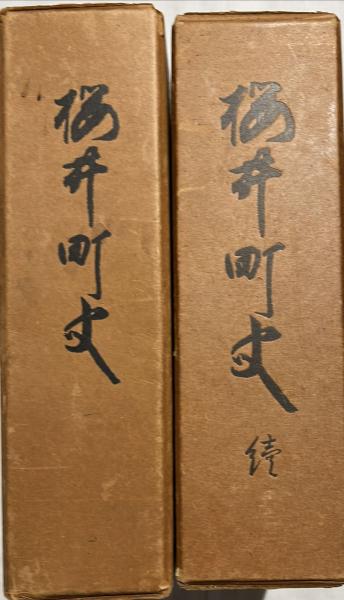 桜井町史
桜井町史
續